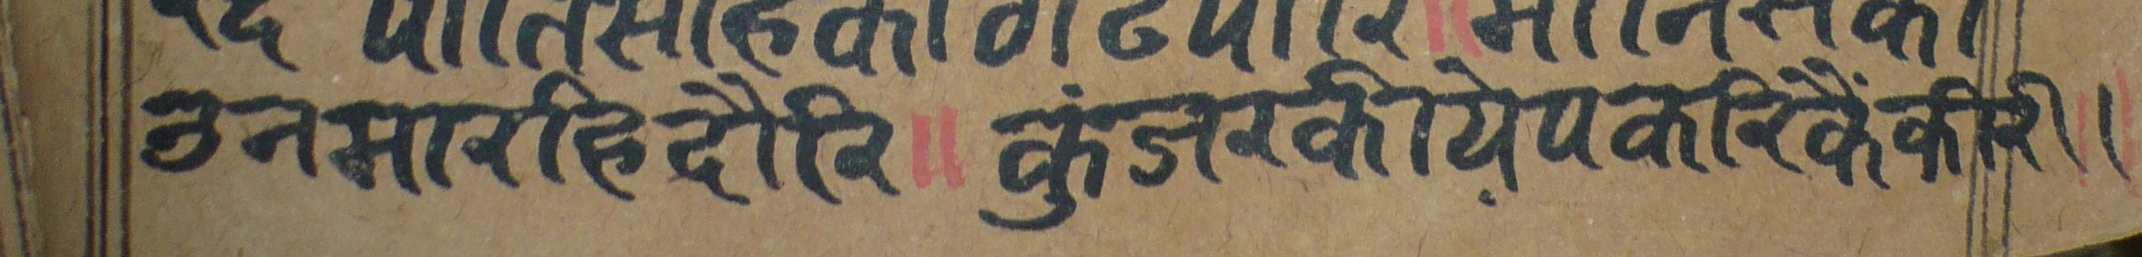 पातिसाहकोगढपौरि॥मानिसको
उनमारहिदौरि॥कुंजरकीयेपकरिकैंकीरी॥